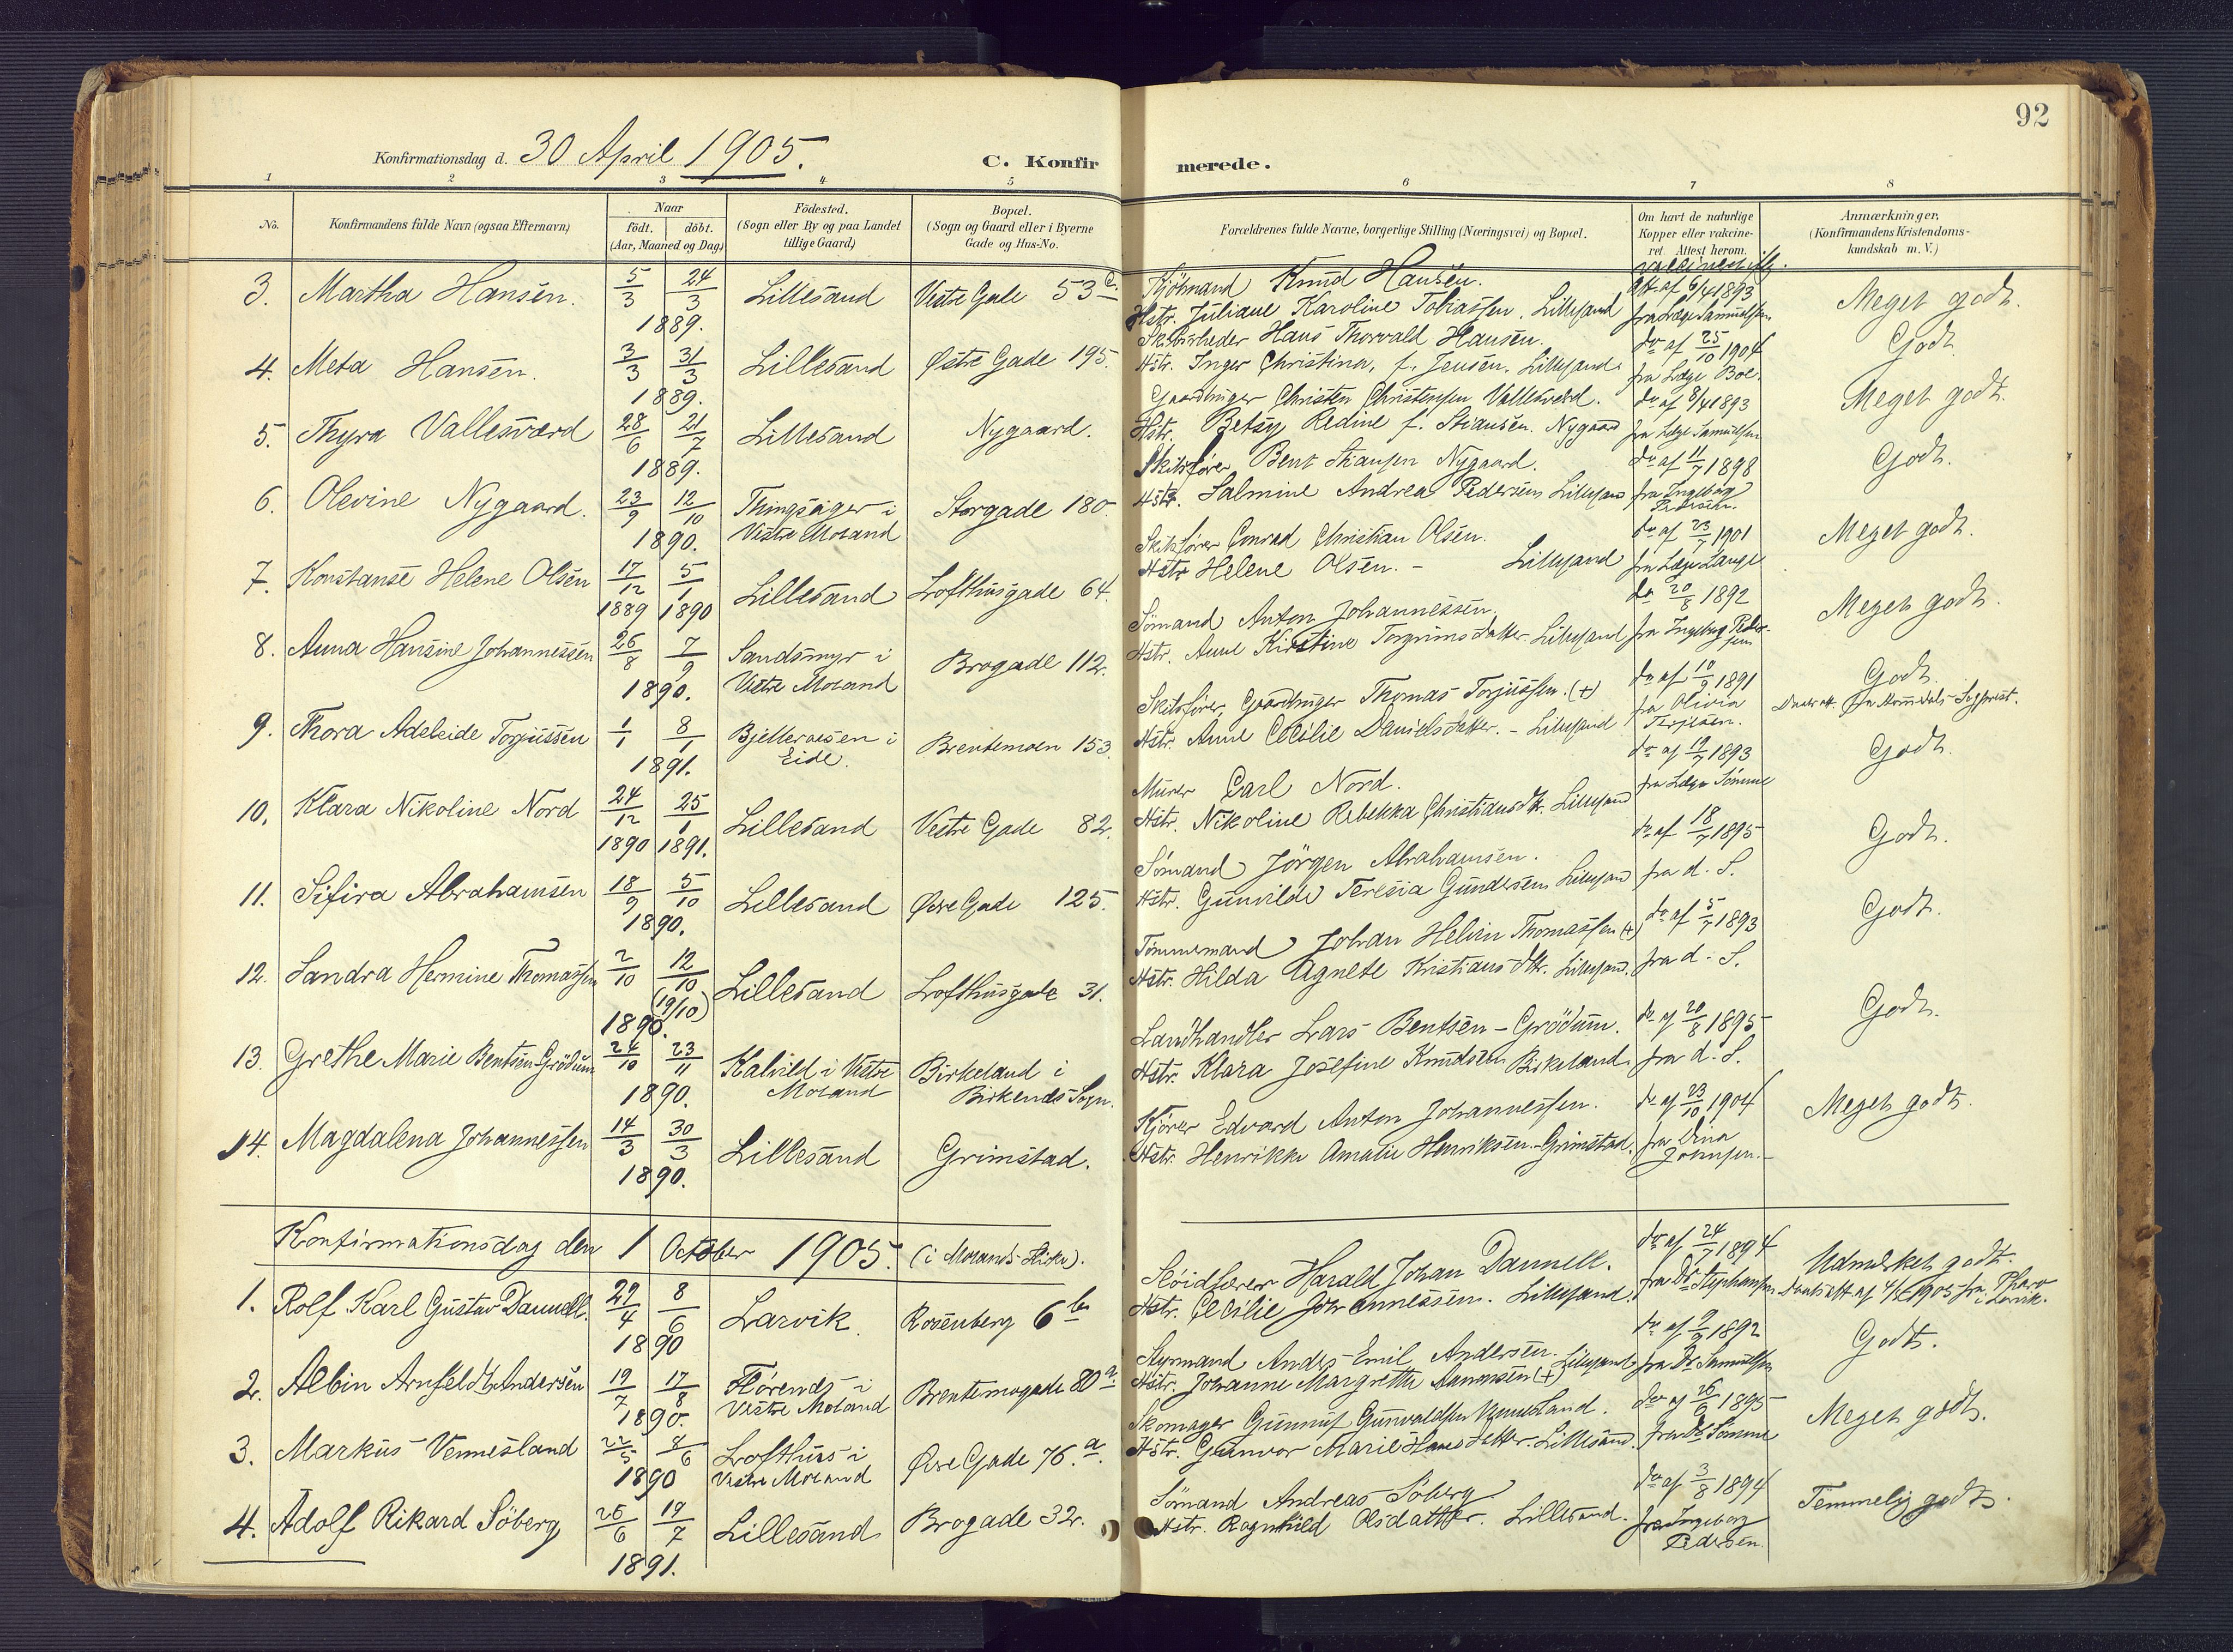 92
Konfirmationsdag d. 30 April 1905.
C. Konfirmerede.
1 2 3 4 5 6 7 8
No.
Konfirmandens fulde Navn (ogsaa Efternavn)
Naar
födt. döbt.
(Aar, Maaned og Dag)
Födested.
(Sogn eller By og paa Landet
tillige Gaard)
Bopæl.
(Sogn og Gaard eller i Byerne
Gade og Hus-No.
Forældrenes fulde Navne, borgerlige Stilling (Næringsvei) og Bopæl.
Om havt de naturlige
Kopper eller vakcine-
ret. Attest herom.
Anmærkninger,
(Konfirmandens Kristendoms-
kundskab m. V.)
3. Martha Hansen. 5/3 24/3 1889. Lillesand Vestre Gade 53 c.
Kjöbmand Knud Hansen.
Hstr. Juliane Karoline Tobiassen. Lillesand
Att. af 6/4 1893
fra Læge Samuelsen
Meget godt.
4. Meta Hansen. 3/3 31/3 1889. Lillesand Östre Gade 195.
Skibsrheder Hans Thorvald Hansen.
Hstr. Inger Christina, f. Jensen. Lillesand
do af 25/10 1904
fra Læge Boe.
Godt.
5. Thyra Vallesværd 28/6 21/7 1889. Lillesand Nygaard.
Gaardbruger Christen Christensen Vallesverd.
Hstr. Betsy Redine f. Stiansen. Nygaard
do af 8/4 1893
fra Læge Samuelsen
Meget godt.
6. Olevine Nygaard. 23/9 12/10 1890. Thingsager i
Vestre Moland Storgade 180
Skibsförer Bent Stiansen Nygaard.
Hstr. Salmine Andrea Pedersen Lillesand
do af 11/7 1898
fra Ingeborg
Pedersen.
Godt.
7. Konstanse Helene Olsen 17/12 1889 5/1 1890 Lillesand Lofthusgade 64.
Skibsförer Conrad Christian Olsen.
Hstr. Helene Olsen. - Lillesand
do af 23/7 1901
fra Læge Lange
Meget godt.
8. Anna Hansine Johannessen 26/8 7/9 1890. Sandsmyr i
Vestre Moland Brogade 112.
Sömand Anton Johannessen.
Hstr. Anne Kirstine Torgrimsdatter - Lillesand
do 20/8 1892
fra Ingeborg Peder-
sen
Meget godt.
9. Thora Adeleide Torjussen 1/1 8/1 1891. Bjelleraasen i
Eide. Brentemoen 153.
Skibsförer, Gaardbruger Thomas Torjussen. (+)
Hstr. Anne Cecilie Danielsdatter. - Lillesand
do af 10/9 1891
fra Olivia
Terjesen.
Godt.
10. Klara Nikoline Nord 24/12 1890 25/1 1891. Lillesand Vestre Gade 82.
Murer Carl Nord.
Hstr. Nikoline Rebekka Christiansdtr. Lillesand
do af 19/7 1893
fra Læge Sömme
Godt.
11. Sifira Abrahamsen 18/9 5/10 1890. Lillesand Övre Gade 125.
Sömand Jörgen Abrahamsen.
Hstr. Gunvilde Teresia Gundersen Lillesand
do af 18/7 1895
fra d. S.
Godt.
12. Sandra Hermine Thomassen 2/10 12/10 (19/10) 1890. Lillesand Lofthusgade 31.
Tömmermand Johan Helvin Thomassen (+)
Hstr. Hilda Agnete Kristiansdtr. Lillesand.
do af 5/7 1893
fra d. S.
Godt.
13. Grethe Marie Bentsen Grödum 24/10 23/11 1890. Kalvild i Vestre
Moland Birkeland i
Birkenes Sogn.
Landhandler Lars Bentsen - Grödum.
Hstr. Klara Josefine Knudsen Birkeland.
do af 20/8 1895
fra d. S.
Godt.
14. Magdalena Johannessen 14/3 30/3 1890. Lillesand Grimstad.
Kjörer Edvard Anton Johannessen.
Hstr. Henrikke Amalie Henriksen - Grimstad.
do af 23/10 1904
fra Dina
Johnsen.
Meget godt.
Konfirmationsdag den 1 October 1905. (i Molands Kirke).
1. Rolf Karl Gustav Dannell. 29/4 8/6 1890 Larvik Rosenberg 6 b
Slöidlærer Harald Johan Dannell.
Hstr. Cecilie Johannessen. Lillesand.
do af 24/7 1894
fra Dr Stephansen
Udmerket godt.
Daabsatt af 4/4 1905 fra Pharo
i Larvik.
2. Albin Arnfeldt Andersen 19/7 17/8 1890. Flörenes i
Vestre Moland Brentemogade 80 a.
Styrmand Anders Emil Andersen.
Hstr. Johanne Margrethe Aanonsen (+) Lillesand
do af 9/7 1892
fra Dr Samuelsen
Godt.
3. Markus Vennesland 22/5 8/6 1890 Lofthus i
Vestre Moland Övre Gade 76. a.
Skomager Gunnuf Gunvaldsen Vennesland.
Hstr. Gunvor Marie Hansdatter. Lillesand.
do af 26/6 1895
fra Dr Sömme
Meget godt.
4. Adolf Rikard Söberg 26/6 19/7 1891. Lillesand Brogade 32.
Sömand Andreas Söberg
Hstr. Ragnhild Olsdatter. Lillesand.
do af 3/8 1894
fra Ingeborg
Pedersen
Temmelig godt.